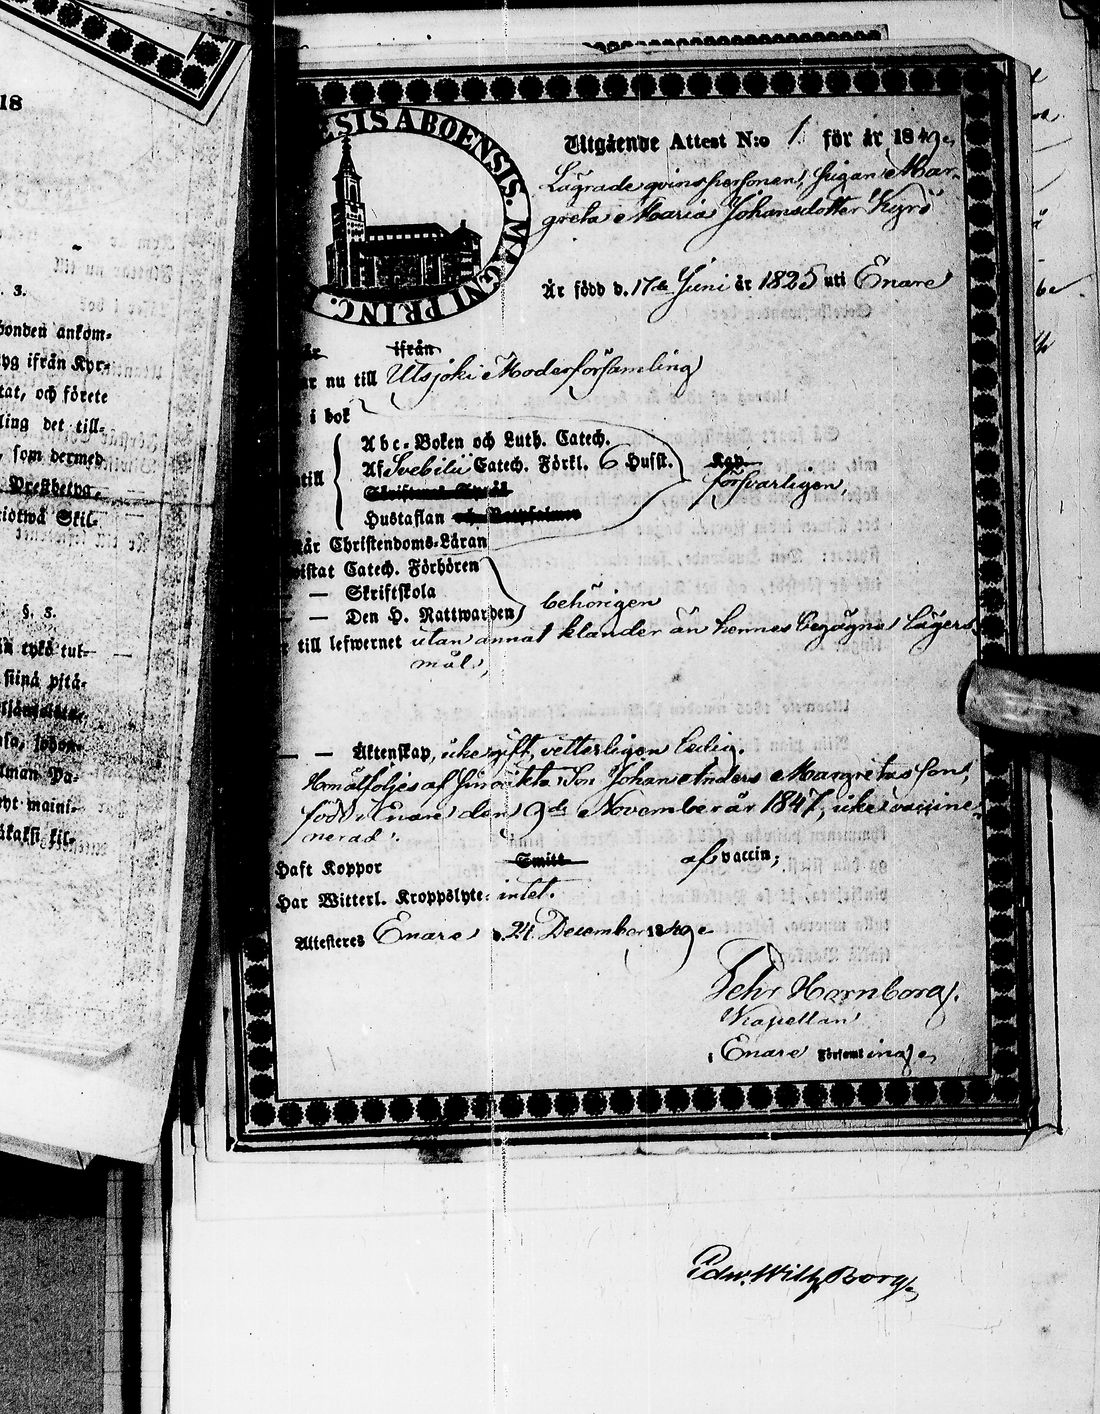 18
. 3.
bonden ankom-
tyg ifrån Kyr-
tat, och förete
ling det till-
, som dermed
Prestbetyg,
tiotwå Skil-
§. 3.
ESIS ABOENSIS. MAGNI PRINC.
Utgående Attest N:o 1 för år 1849,
Lägrade qvinspersonen, pigan Mar-
greta Maria Johansdotter Kyrö
Är född d. 17de Juni år 1825 uti Enare
ifrån
nu till Utsjoki Moderförsamling
i bok
Abc-Boken och Luth. Catech.
Af Svebilii Catech. Förkl. 6 Hufst.
försvarligen,
Hustaflan
Christendoms-Läran
wistat Catech. Förhören
— Skriftskola
— Den H. Nattwarden
behörigen
till lefwernet utan annat klander än hennes begågna lägers-
mål,
— — Äktenskap, icke gift, vetterligen ledig.
Hon åtföljes af sin oäkta Son Johan Anders Margretas son,
född i Enare den 9de November år 1847, icke vaccine-
nerad.
Haft Koppor Smitt af vaccin;
Har Witterl. Kroppslyte: intet.
Attesteres Enare d. 24 December 1849.
Pehr Hornborg.
Kapellan
i Enare Församling.
Edw. Wilh. Borg.